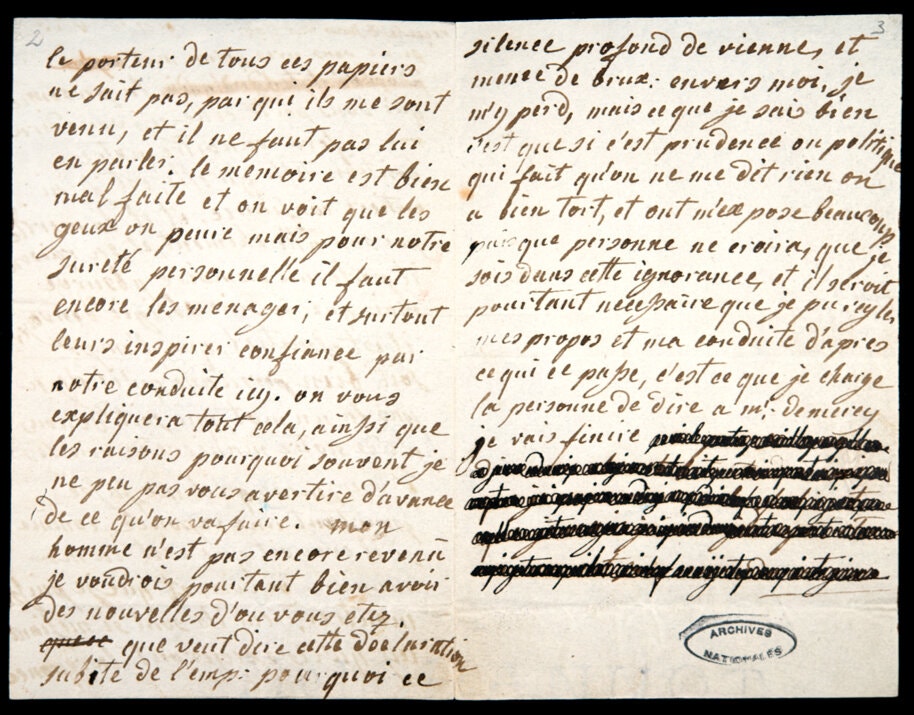 2
le porteur de tous ces papiers
ne sait pas, par qui ils me sont
venu, et il ne faut pas lui
en parler. le memoire est bien
mal faite et on voit que les
geux on peure mais pour notre
sureté personnelle il faut
encore les menager, et surtout
leurs inspirer confiance par
notre conduite icy. on vous
expliquera tout cela, ainsi que
les raisons pourquoi souvent je
ne peu pas vous avertire d'avance
de ce qu'on va faire. mon
homme n'est pas encore revenu
je voudrois pourtant bien avoir
des nouvelles d'ou vous etez.
que veut dire cette declaration
subite de l'emp: pourquoi ce
3
silence profond de vienne, et
meme de brux: envers moi, je
m'y perd, mais ce que je sais bien
c'est que si c'est prudence ou politique
qui fait qu'on ne me dit rien on
a bien tort, et ont m'expose beaucoup
puisque personne ne croira, que je
sois dans cette ignorance, et il seroit
pourtant necessaire que je puregler
mes propos et ma conduite d'apres
ce qui ce passe, c'est ce que je charge
la personne de dire a mr. de mercy
je vais finire
ARCHIVES
NATIONALES